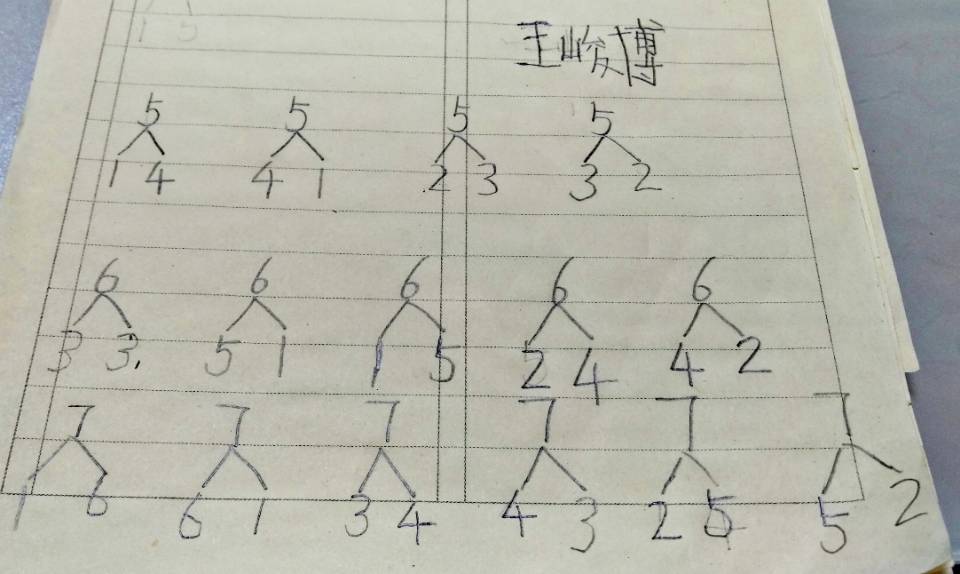 1 5
王峻博
5 5 5 5
1 4 4 1 2 3 3 2
6 6 6 6 6
3 3. 5 1 1 5 2 4 4 2
7 7 7 7 7 7
1 6 6 1 3 4 4 3 2 5 5 2